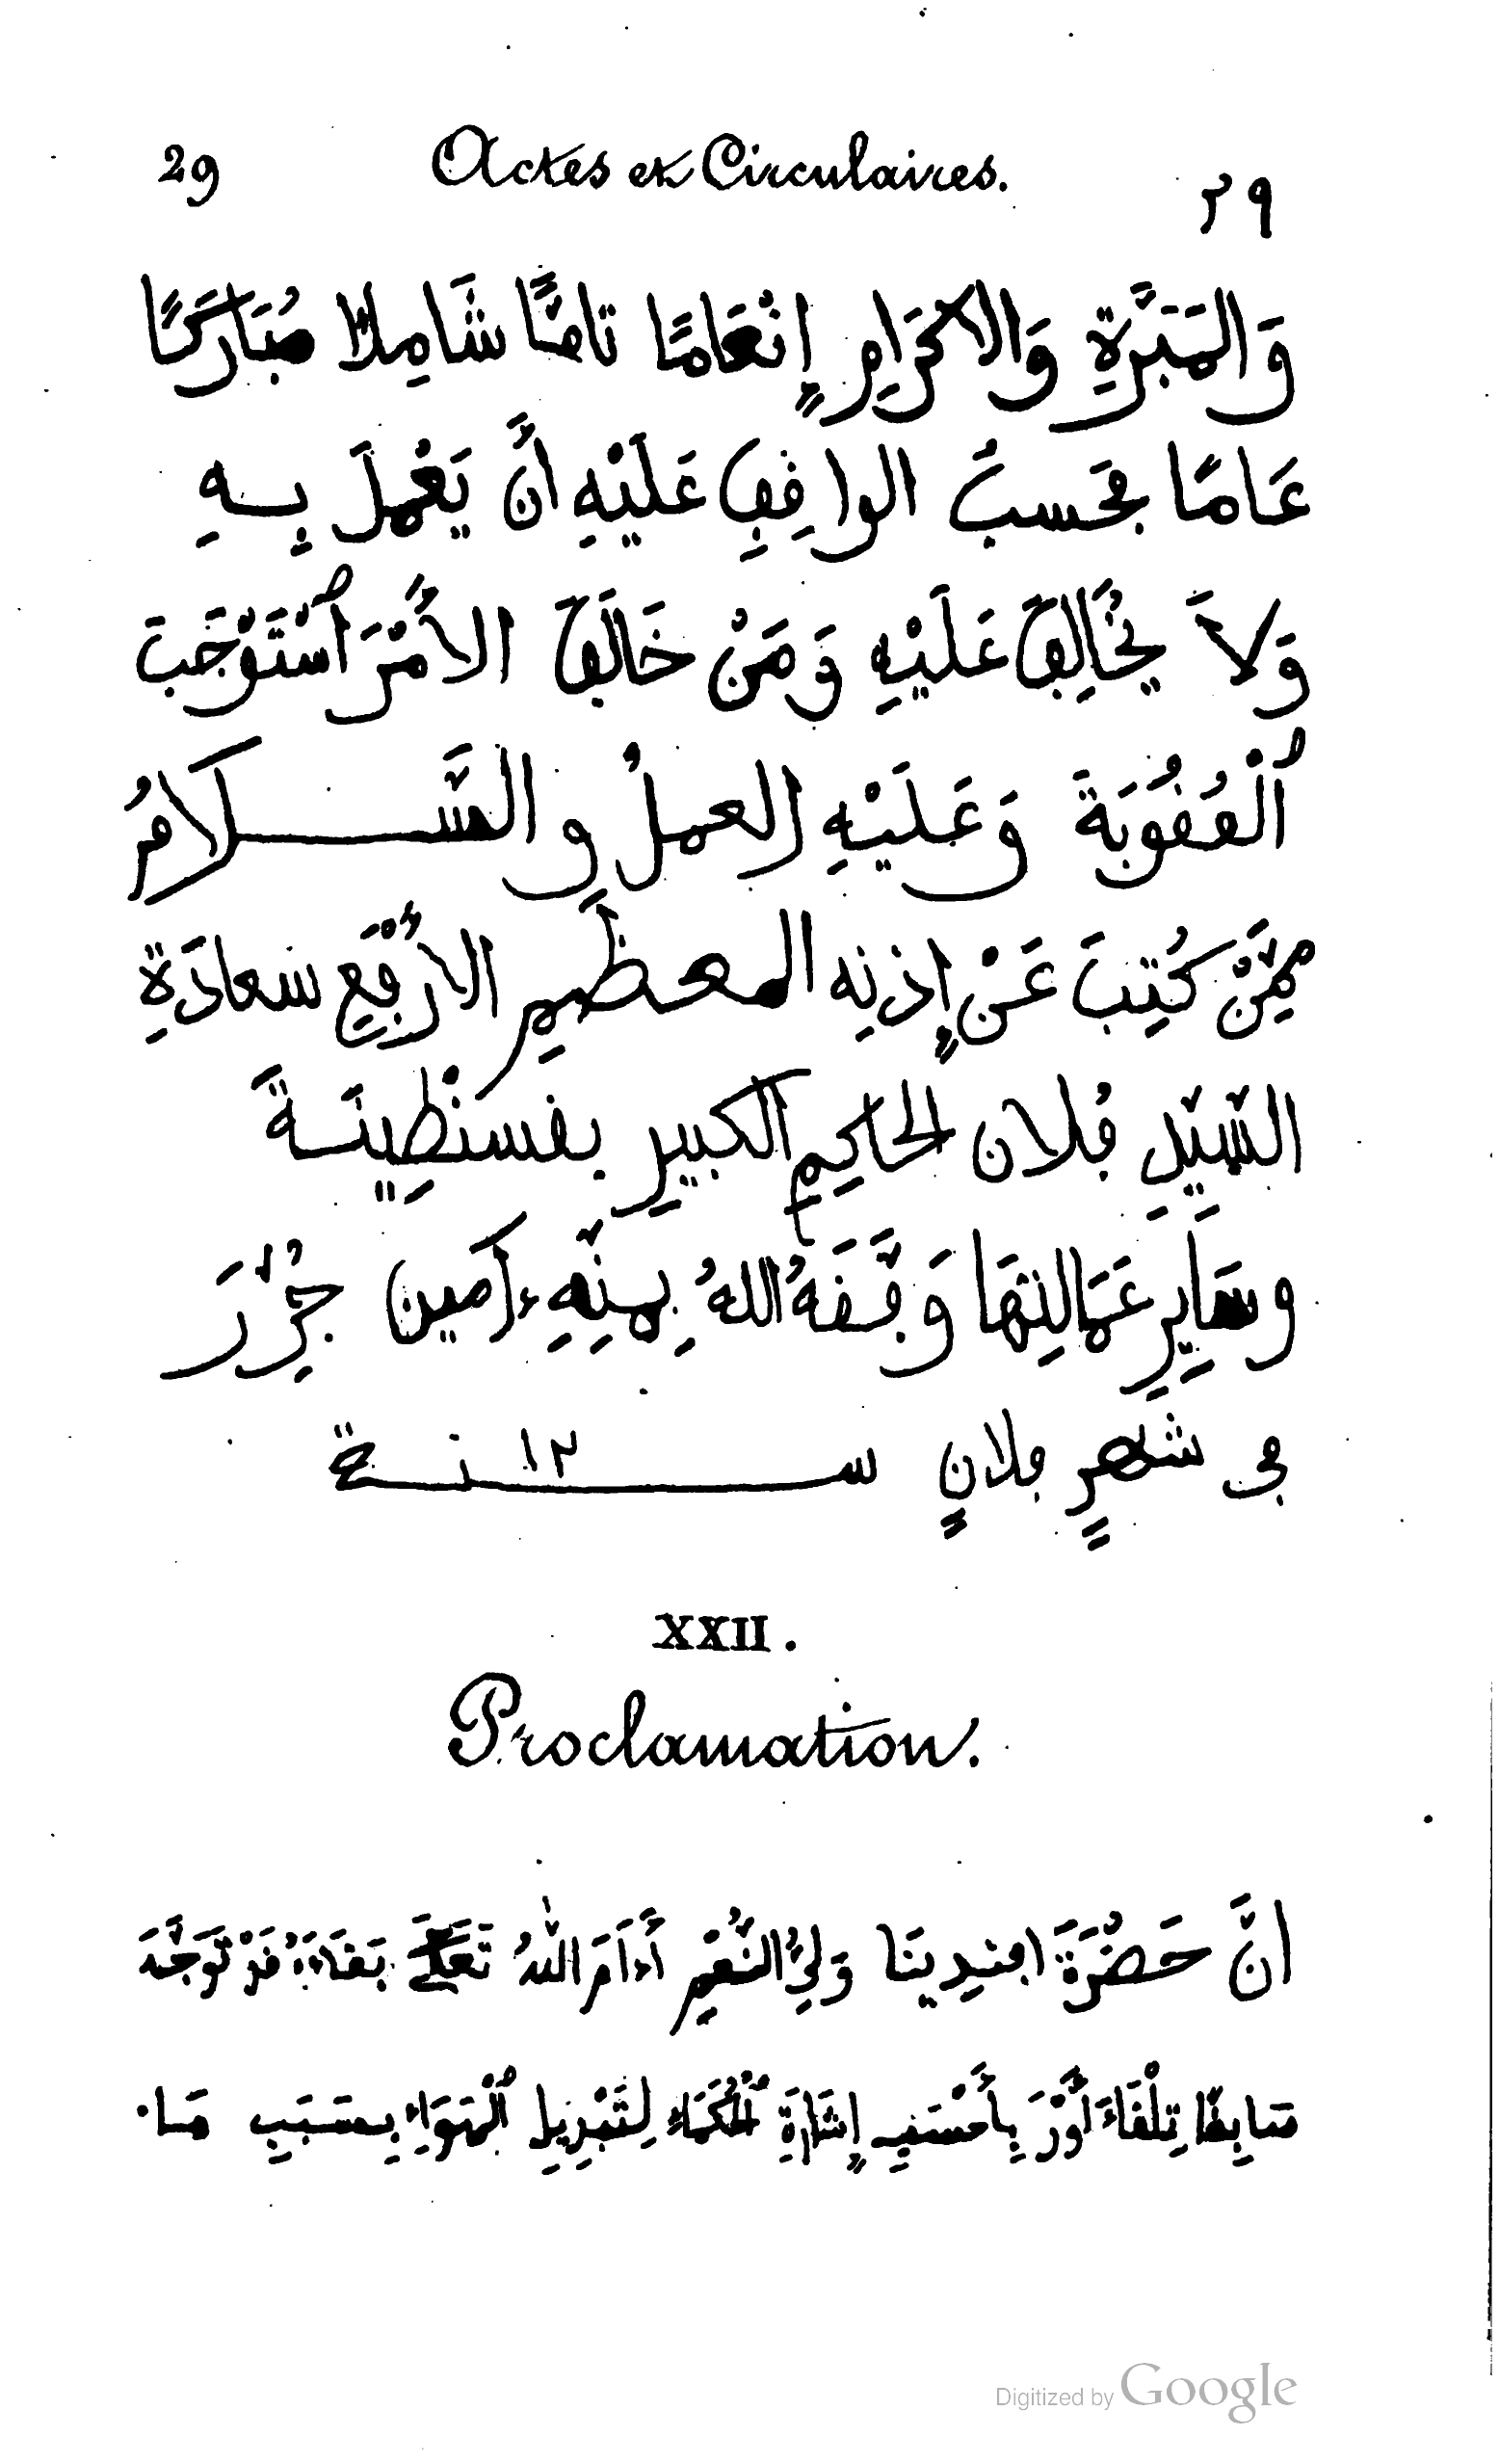 29 Actes et Circulaires. ٢٩
وَالمَبَرَّةِ وَالاكْرَامِ إِنْعَامًا تامًّا شَامِلًا مُبَارَكًا
عَامًا بحَسبِ الواقِفِ عَلَيْهِ أنَّ يَعْملَ بِهِ
وَلاَ يُخَالِفَ عَلَيْهِ وَمَنْ خَالَفَ الأمْرَ ٱسْتَوْجَبَ
ٱلْعُقُوبَةَ وَعَلَيْهِ العملُ والسَّلامُ
مِمَّنْ كُتِبَ عَنْ إِذنِه المعظَّمِ الأَرْفَعِ سَعادَةِ
السَّيِّدِ فُلان الحَاكِمِ الكبيرِ بقسَنْطِينَةَ
وسَايِرِ عَمَالتِهَا وَفَّقَهُ اللهُ بِمنِّهِ ءامين حُرِّرَ
في شَهرِ فلانٍ سـ١٢ـنة
XXII.
Proclamation.
انَّ حَضْرَةَ افنديِنَا وَلِيُّ النِّعَمِ أدَامَ اللهُ تَعَلَىَ بَقَاءَهُ قَدْ تَوَجَّهَ
سَابِقًا تِلْقَاءَ أوْرَبا إِشَارَةِ الْحُكَمَاءِ لِتَبْدِيلِ ٱلْهَوَاءِ بِسَبَبِ مَا
Digitized by Google